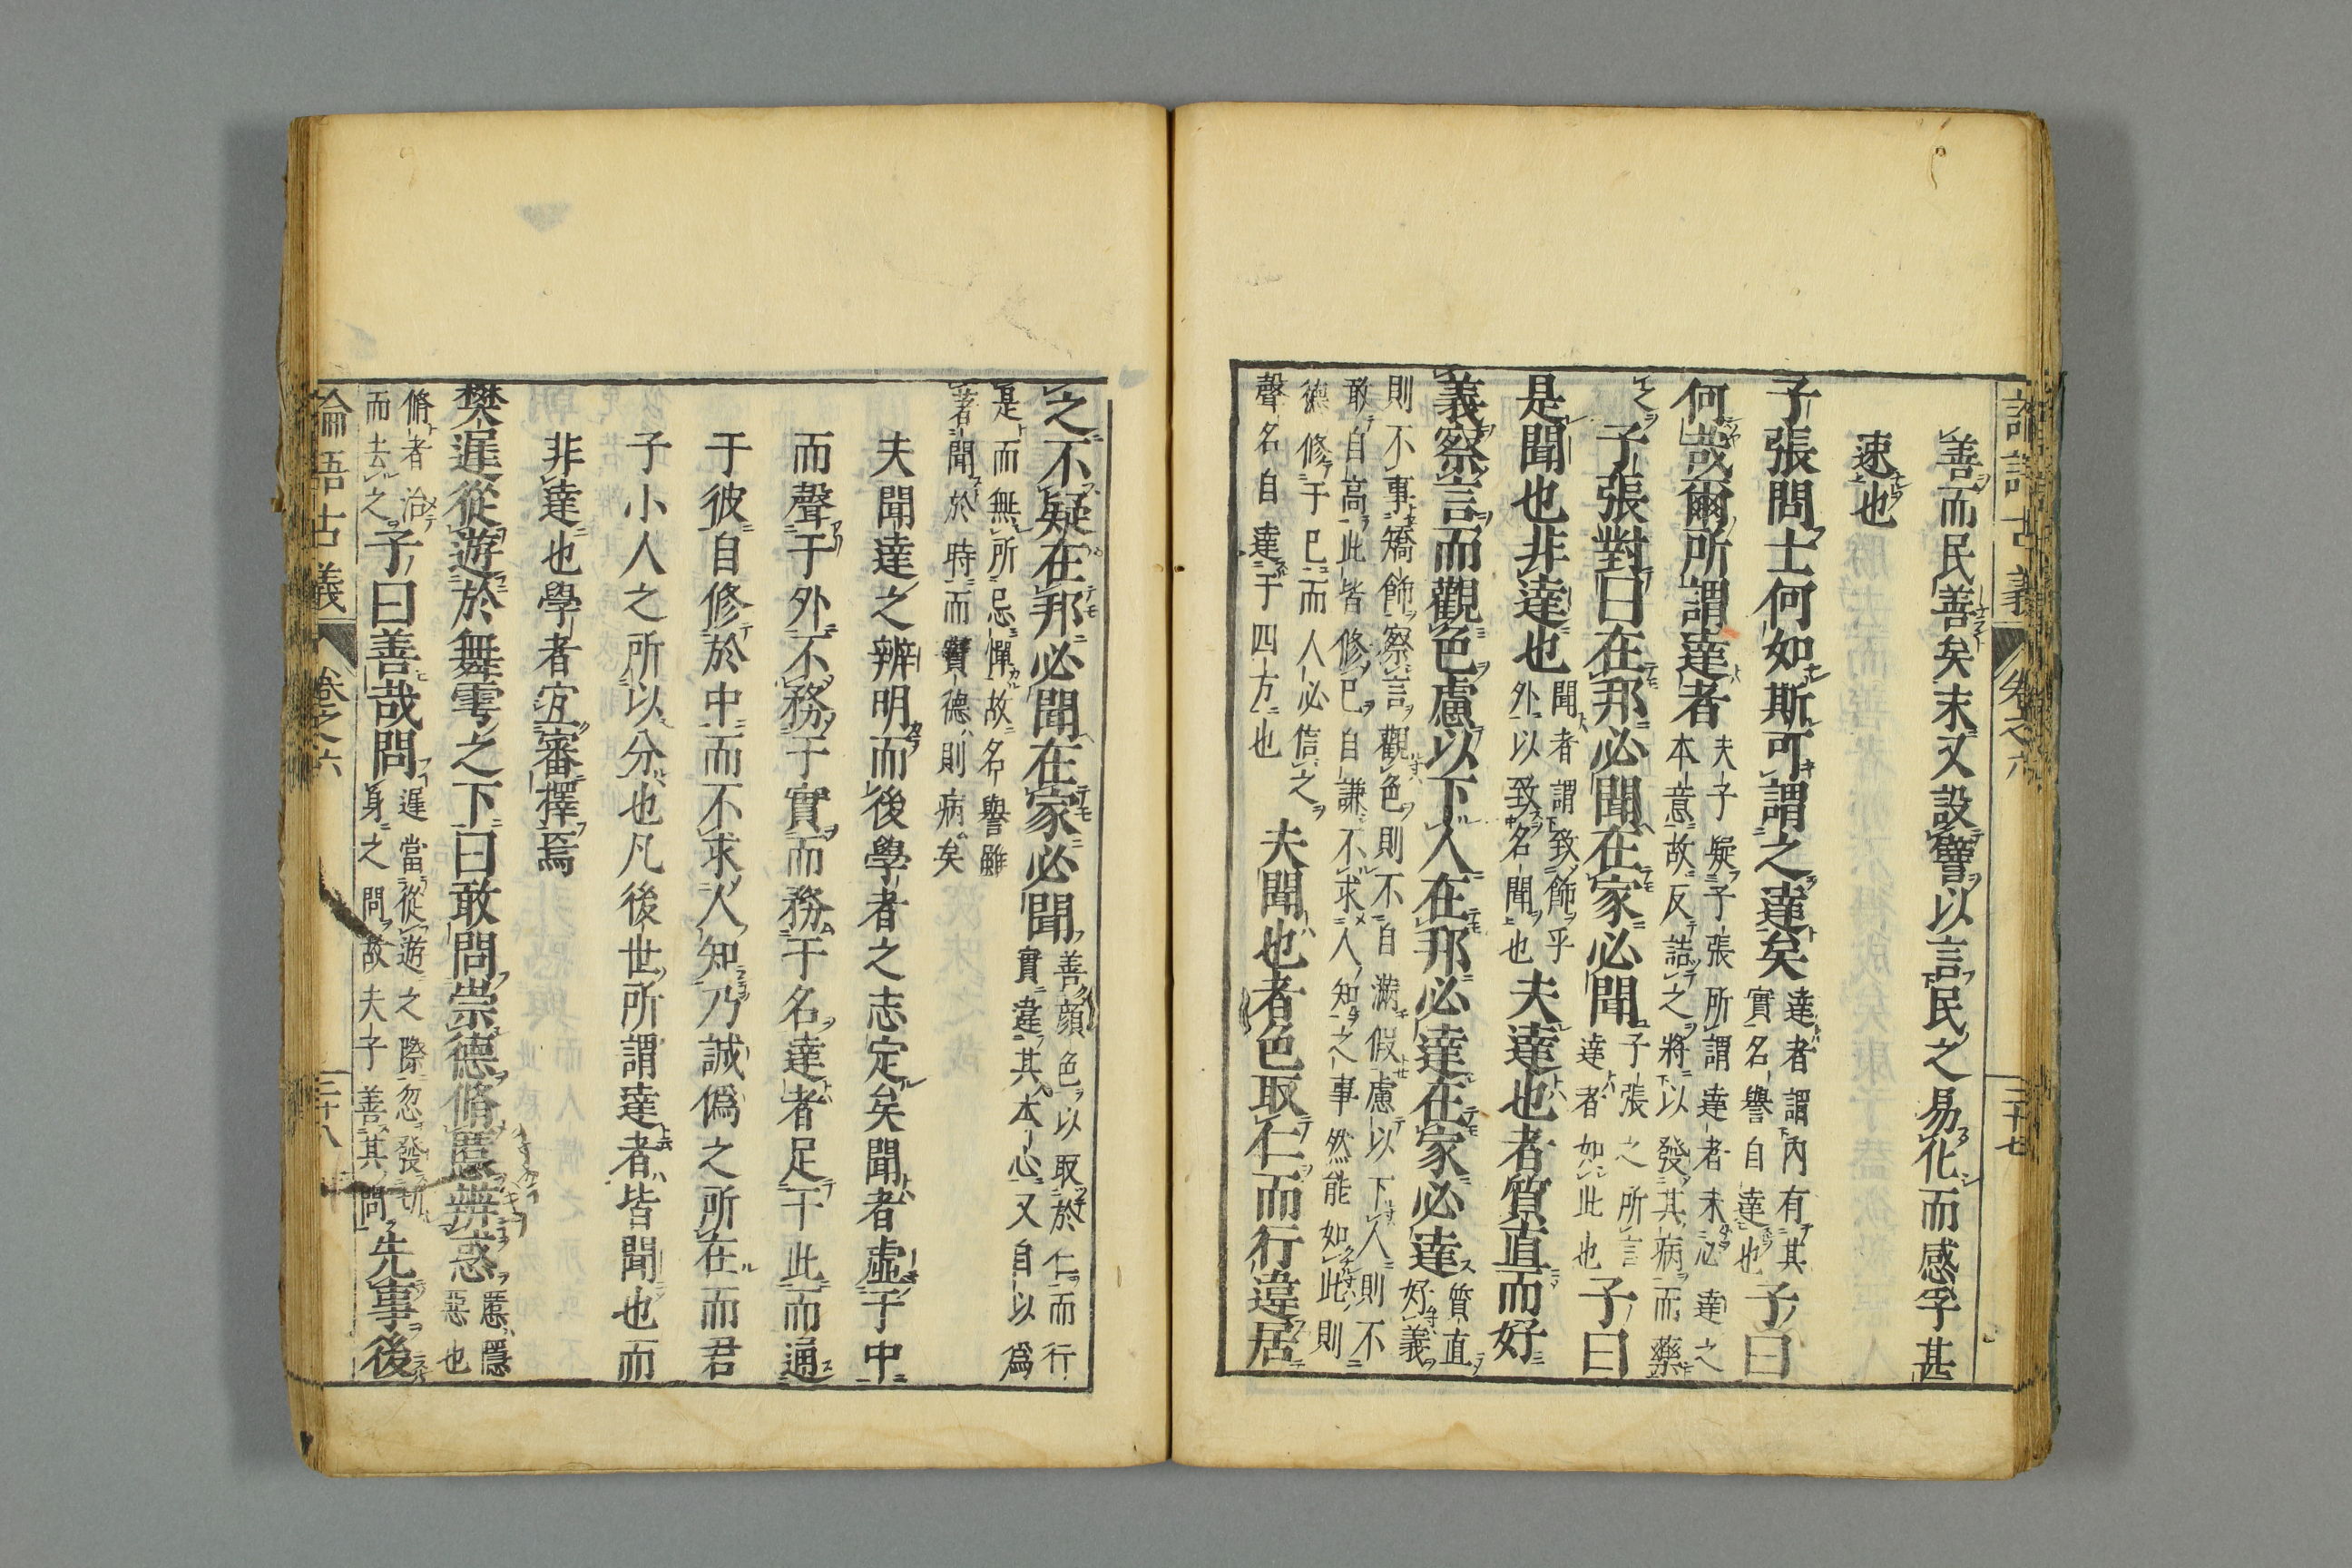 論語古義 卷之六 三十七
善而民善矣末又設譬以言民之易化而感孚甚
速也
子張問士何如斯可謂之達矣達者謂內有其
實名譽自達也子曰
何哉爾所謂達者夫子疑子張所謂達者未必達之
本意故反詰之將以發其病而藥
之子張對曰在邦必聞在家必聞子張之所言
達者如此也子曰
是聞也非達也聞者謂致飾乎
外以致名聞也夫達也者質直而好
義察言而觀色慮以下人在邦必達在家必達質直
好義
則不事矯飾察言觀色則不自滿假慮以下人則不
敢自高此皆修己自謙不求人知之事然能如此則
德修于己而人必信之
聲名自達于四方也夫聞也者色取仁而行違居
之不疑在邦必聞在家必聞善顏色以取於仁而行
實違其本心又自以爲
是而無所忌憚故名譽雖
著聞於時而實德則病矣
夫聞達之辨明而後學者之志定矣聞者虛于中
而聲于外不務于實而務于名達者足于此而通
于彼自修於中而不求人知乃誠僞之所在而君
子小人之所以分也凡後世所謂達者皆聞也而
非達也學者宜審擇焉
樊遲從遊於舞雩之下曰敢問崇德脩慝辨惑慝隱
惡也
脩者治
而去之子曰善哉問遲當從遊之際忽發切
身之問故夫子善其問先事後
論語古義 卷之六 三十八